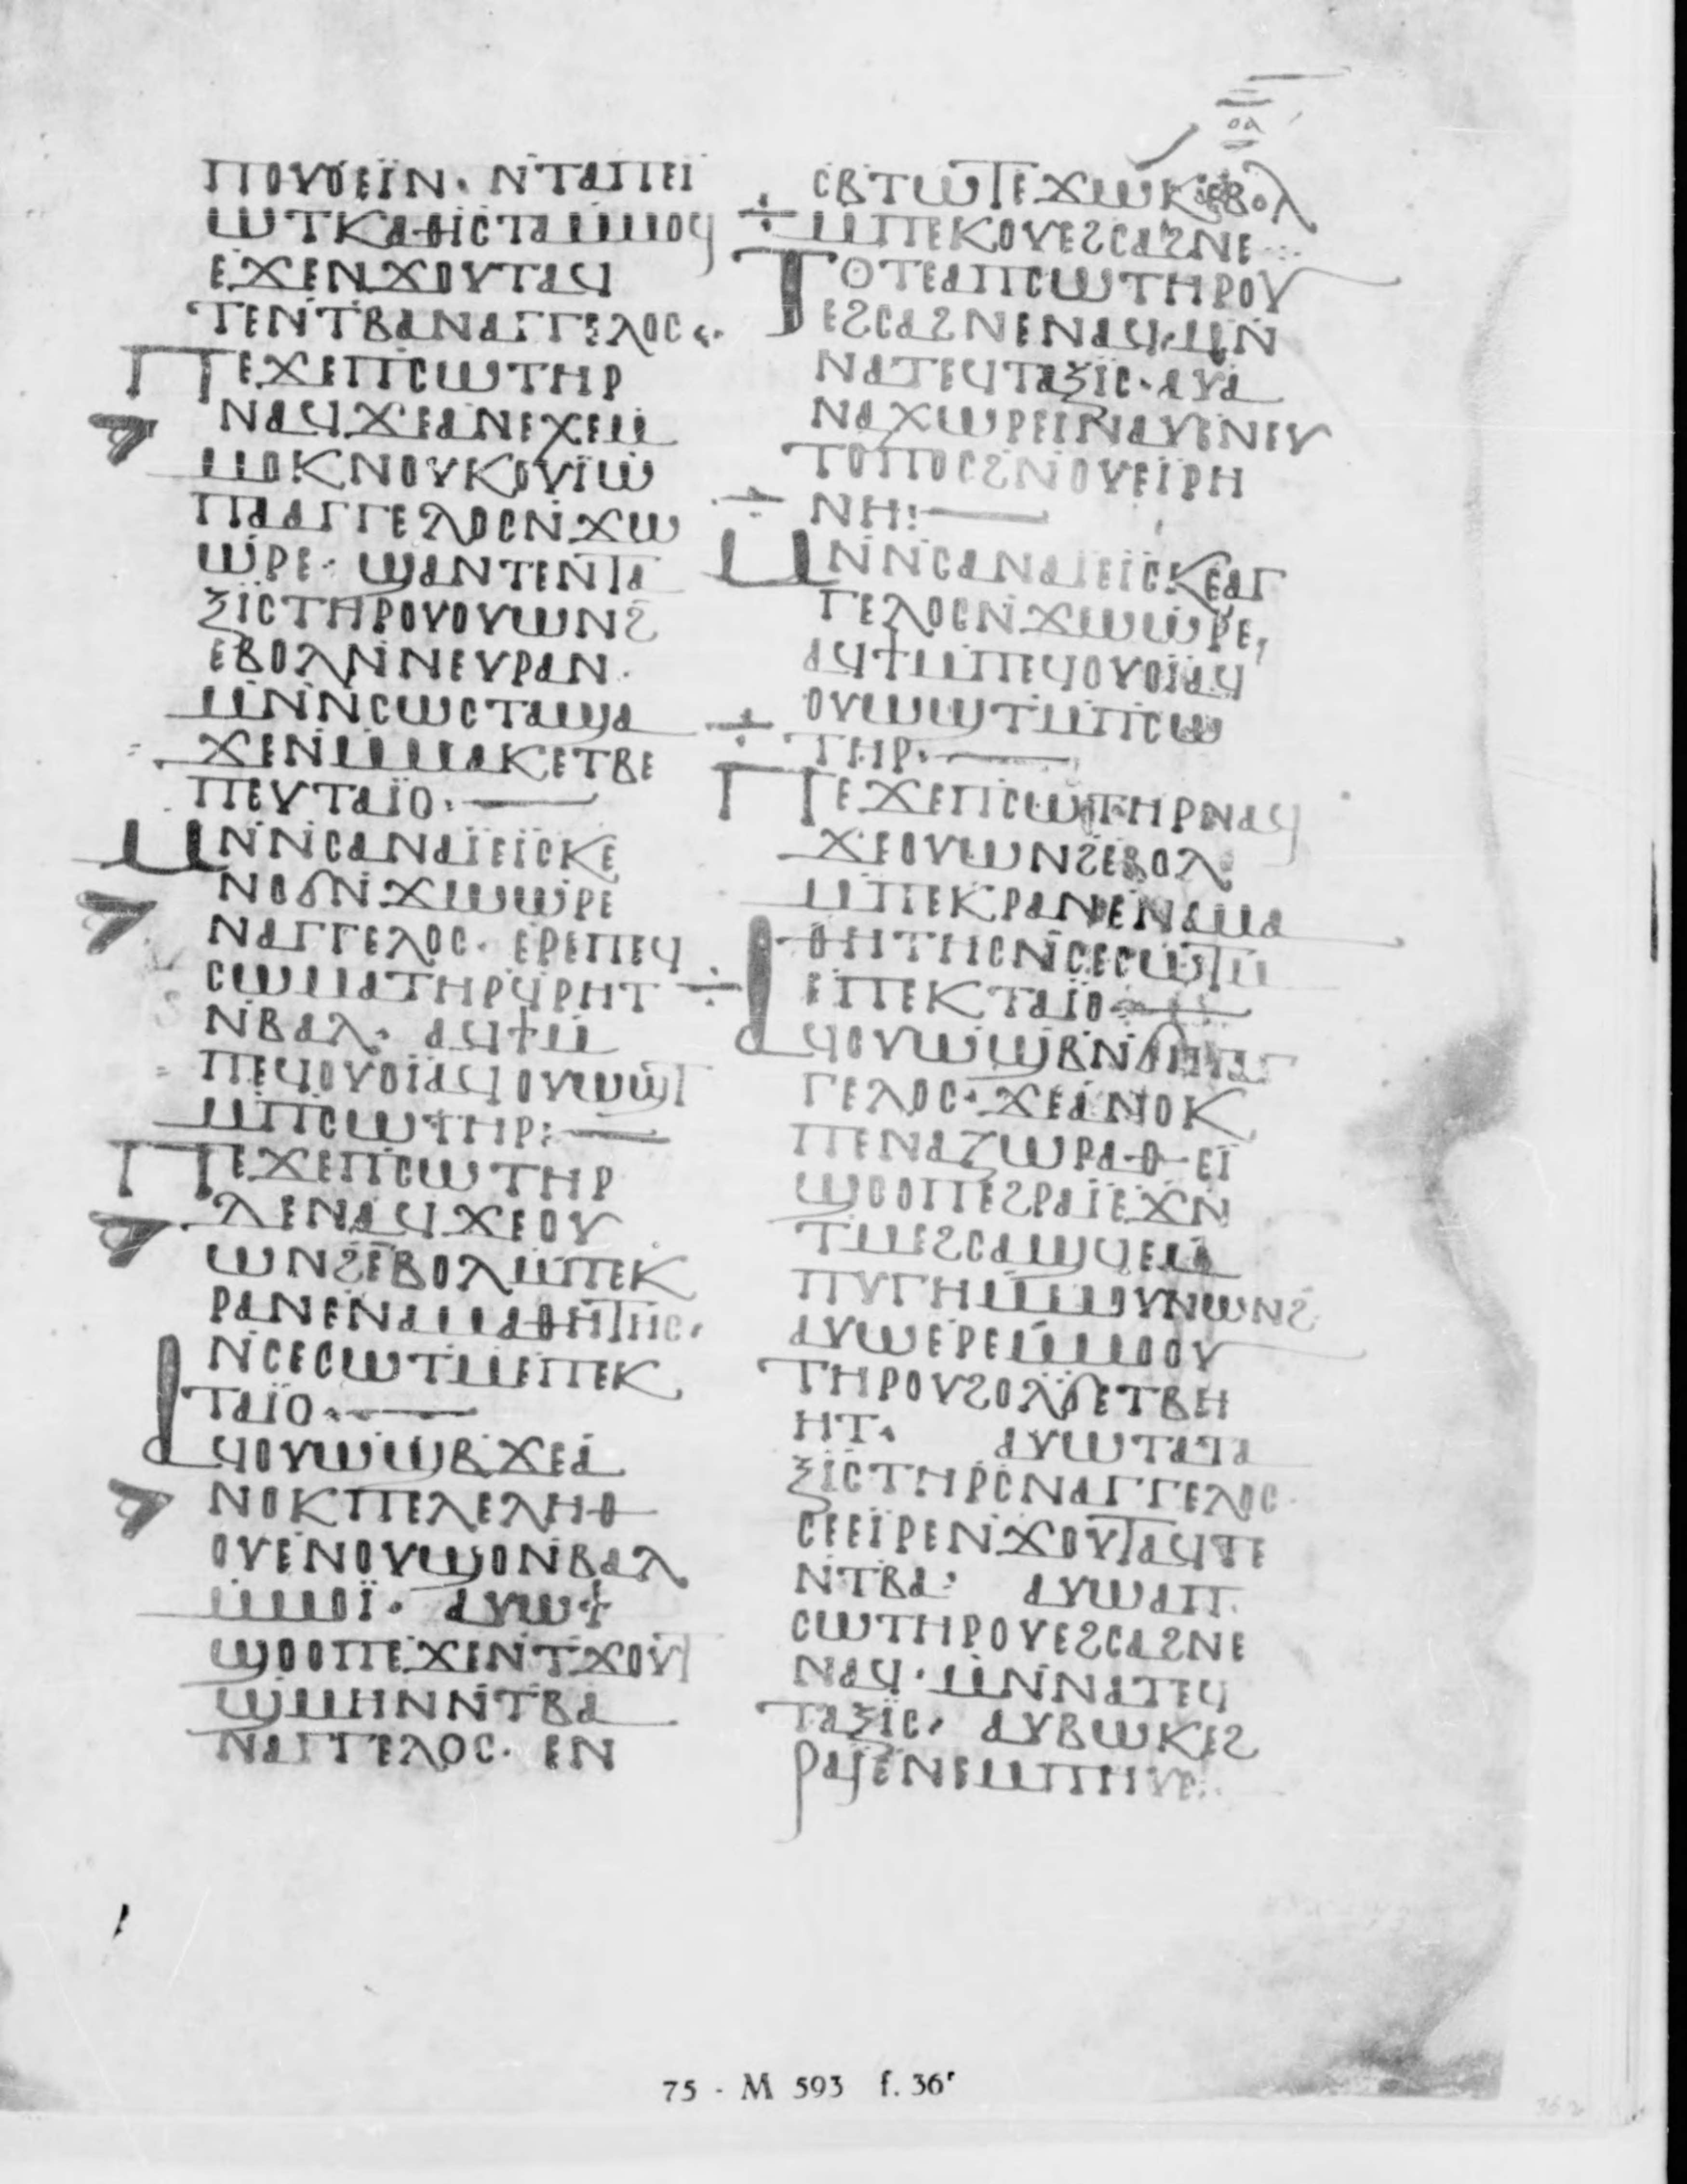 ⲟⲁ
ⲡⲟⲩⲟⲉⲓⲛ· ⲛⲧⲁⲡⲉⲓ
ⲱⲧⲕⲁⲑⲓⲥⲧⲁⲙⲙⲟϥ
ⲉϫⲉⲛϫⲟⲩⲧⲁϥ
ⲧⲉⲛⲧⲃⲁⲛⲁⲅⲅⲉⲗⲟⲥ
ⲡⲉϫⲉⲡⲥⲱⲧⲏⲣ
ⲛⲁϥϫⲉⲁⲛⲉⲭⲉⲙ
ⲙⲟⲕⲛⲟⲩⲕⲟⲩⲓⲱ
ⲡⲁⲁⲅⲅⲉⲗⲟⲥⲛϫⲱ
ⲱⲣⲉ· ϣⲁⲛⲧⲉⲛⲧⲁ
ⲝⲓⲥⲧⲏⲣⲟⲩⲟⲩⲱⲛϩ
ⲉⲃⲟⲗⲛⲛⲉⲩⲣⲁⲛ·
ⲙⲛⲛⲥⲱⲥⲧⲁϣⲁ
ϫⲉⲛⲙⲙⲁⲕⲉⲧⲃⲉ
ⲡⲉⲩⲧⲁⲓⲟ·
ⲙⲛⲛⲥⲁⲛⲁⲓⲉⲓⲥⲕⲉ
ⲛⲟϭⲛϫⲱⲱⲣⲉ
ⲛⲁⲅⲅⲉⲗⲟⲥ· ⲉⲣⲉⲡⲉϥ
ⲥⲱⲙⲁⲧⲏⲣϥⲣⲏⲧ
ⲛⲃⲁⲗ· ⲁϥϯⲙ
ⲡⲉϥⲟⲩⲟⲓⲁϥⲟⲩⲱϣⲧ
ⲙⲡⲥⲱⲧⲏⲣ:
ⲡⲉϫⲉⲡⲥⲱⲧⲏⲣ
ⲇⲉⲛⲁϥϫⲉⲟⲩ
ⲱⲛϩⲉⲃⲟⲗⲙⲡⲉⲕ
ⲣⲁⲛⲉⲛⲁⲙⲁⲑⲏⲧⲏⲥ·
ⲛⲥⲉⲥⲱⲧⲙⲉⲡⲉⲕ
ⲧⲁⲓⲟ·
ⲁϥⲟⲩⲱϣⲃϫⲉⲁ
ⲛⲟⲕⲡⲉⲗⲉⲗⲏⲑ
ⲟⲩⲉⲛⲟⲩϣⲟⲛⲃⲁⲗ
ⲙⲙⲟⲓ· ⲁⲩⲱϯ
ϣⲟⲟⲡⲉϫⲉⲛⲧϫⲟⲩⲧ
ϣⲙⲏⲛⲛⲧⲃⲁ
ⲛⲁⲅⲅⲉⲗⲟⲥ· ⲉⲛ
ⲥⲃⲧⲱⲧⲉϫⲱⲕⲉⲃⲟⲗ
ⲙⲡⲉⲕⲟⲩⲉϩⲥⲁϩⲛⲉ
ⲧⲟⲧⲉⲁⲡⲥⲱⲧⲏⲣⲟⲩ
ⲉϩⲥⲁϩⲛⲉⲛⲁϥ·ⲙⲛ
ⲛⲁⲧⲉϥⲧⲁⲝⲓⲥ·ⲁⲩⲁ
ⲛⲁⲭⲱⲣⲉⲓⲛⲁⲩⲉⲛⲉⲩ
ⲧⲟⲡⲟⲥϩⲛⲟⲩⲉⲓⲣⲏ
ⲛⲏ:
ⲙⲛⲛⲥⲁⲛⲁⲓⲉⲓⲥⲕⲉⲁⲅ
ⲅⲉⲗⲟⲥⲛϫⲱⲱⲣⲉ,
ⲁϥϯⲙⲡⲉϥⲟⲩⲟⲓⲁϥ
ⲟⲩⲱϣⲧⲙⲡⲥⲱ
ⲧⲏⲣ·
ⲡⲉϫⲉⲡⲥⲱⲧⲏⲣⲛⲁϥ
ϫⲉⲟⲩⲱⲛϩⲉⲃⲟⲗ
ⲙⲡⲉⲕⲣⲁⲛⲉⲛⲁⲙⲁ
ⲑⲏⲧⲏⲥⲛⲥⲉⲥⲱⲧⲙ
ⲉⲡⲉⲕⲧⲁⲓⲟ·
ⲁϥⲟⲩⲱϣⲃⲛϭⲓⲡⲁⲅ
ⲅⲉⲗⲟⲥ·ϫⲉⲁⲛⲟⲕ
ⲡⲉⲛⲁⲍⲱⲣⲁⲑⲉⲓ
ϣⲟⲟⲡⲉϩⲣⲁⲓⲉϫⲛ
ⲧⲙⲉϩⲥⲁϣϥⲉⲙ
ⲡⲩⲅⲏⲙⲙⲟⲩⲛⲱⲛϩ
ⲁⲩⲱⲉⲣⲉⲙⲙⲟⲟⲩ
ⲧⲏⲣⲟⲩϩⲟⲗϭⲉⲧⲃⲏ
ⲏⲧ· ⲁⲩⲱⲧⲁⲧⲁ
ⲝⲓⲥⲧⲏⲣⲥⲛⲁⲅⲅⲉⲗⲟⲥ
ⲥⲉⲉⲓⲣⲉⲛϫⲟⲩⲧⲁϥⲧⲉ
ⲛⲧⲃⲁ· ⲁⲩⲱⲁⲡ
ⲥⲱⲧⲏⲣⲟⲩⲉϩⲥⲁϩⲛⲉ
ⲛⲁϥ·ⲙⲛⲛⲁⲧⲉϥ
ⲧⲁⲝⲓⲥ· ⲁⲩⲃⲱⲕⲉϩ
ⲣⲁⲓⲉⲛⲉⲙⲡⲏⲩⲉ
75 - M 593 f. 36ʳ